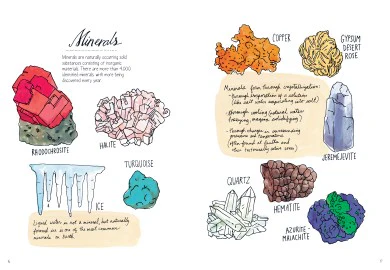 Minerals
Minerals are naturally occurring solid
substances consisting of inorganic
materials. There are more than 4,000
identified minerals with more being
discovered every year.
RHODOCHROSITE
HALITE
TURQUOISE
ICE
Liquid water is not a mineral, but naturally
formed ice is one of the most common
minerals on Earth.
COPPER
GYPSUM
DESERT
ROSE
Minerals form through crystallization:
- Through evaporation of a solution
(like salt water evaporating into salt)
- Through cooling (natural water
freezing, magma solidifying)
- Through changes in surrounding
pressure and temperature
(often found at faults and
other tectonically active areas)
JEREMEJEVITE
QUARTZ
HEMATITE
AZURITE-
MALACHITE